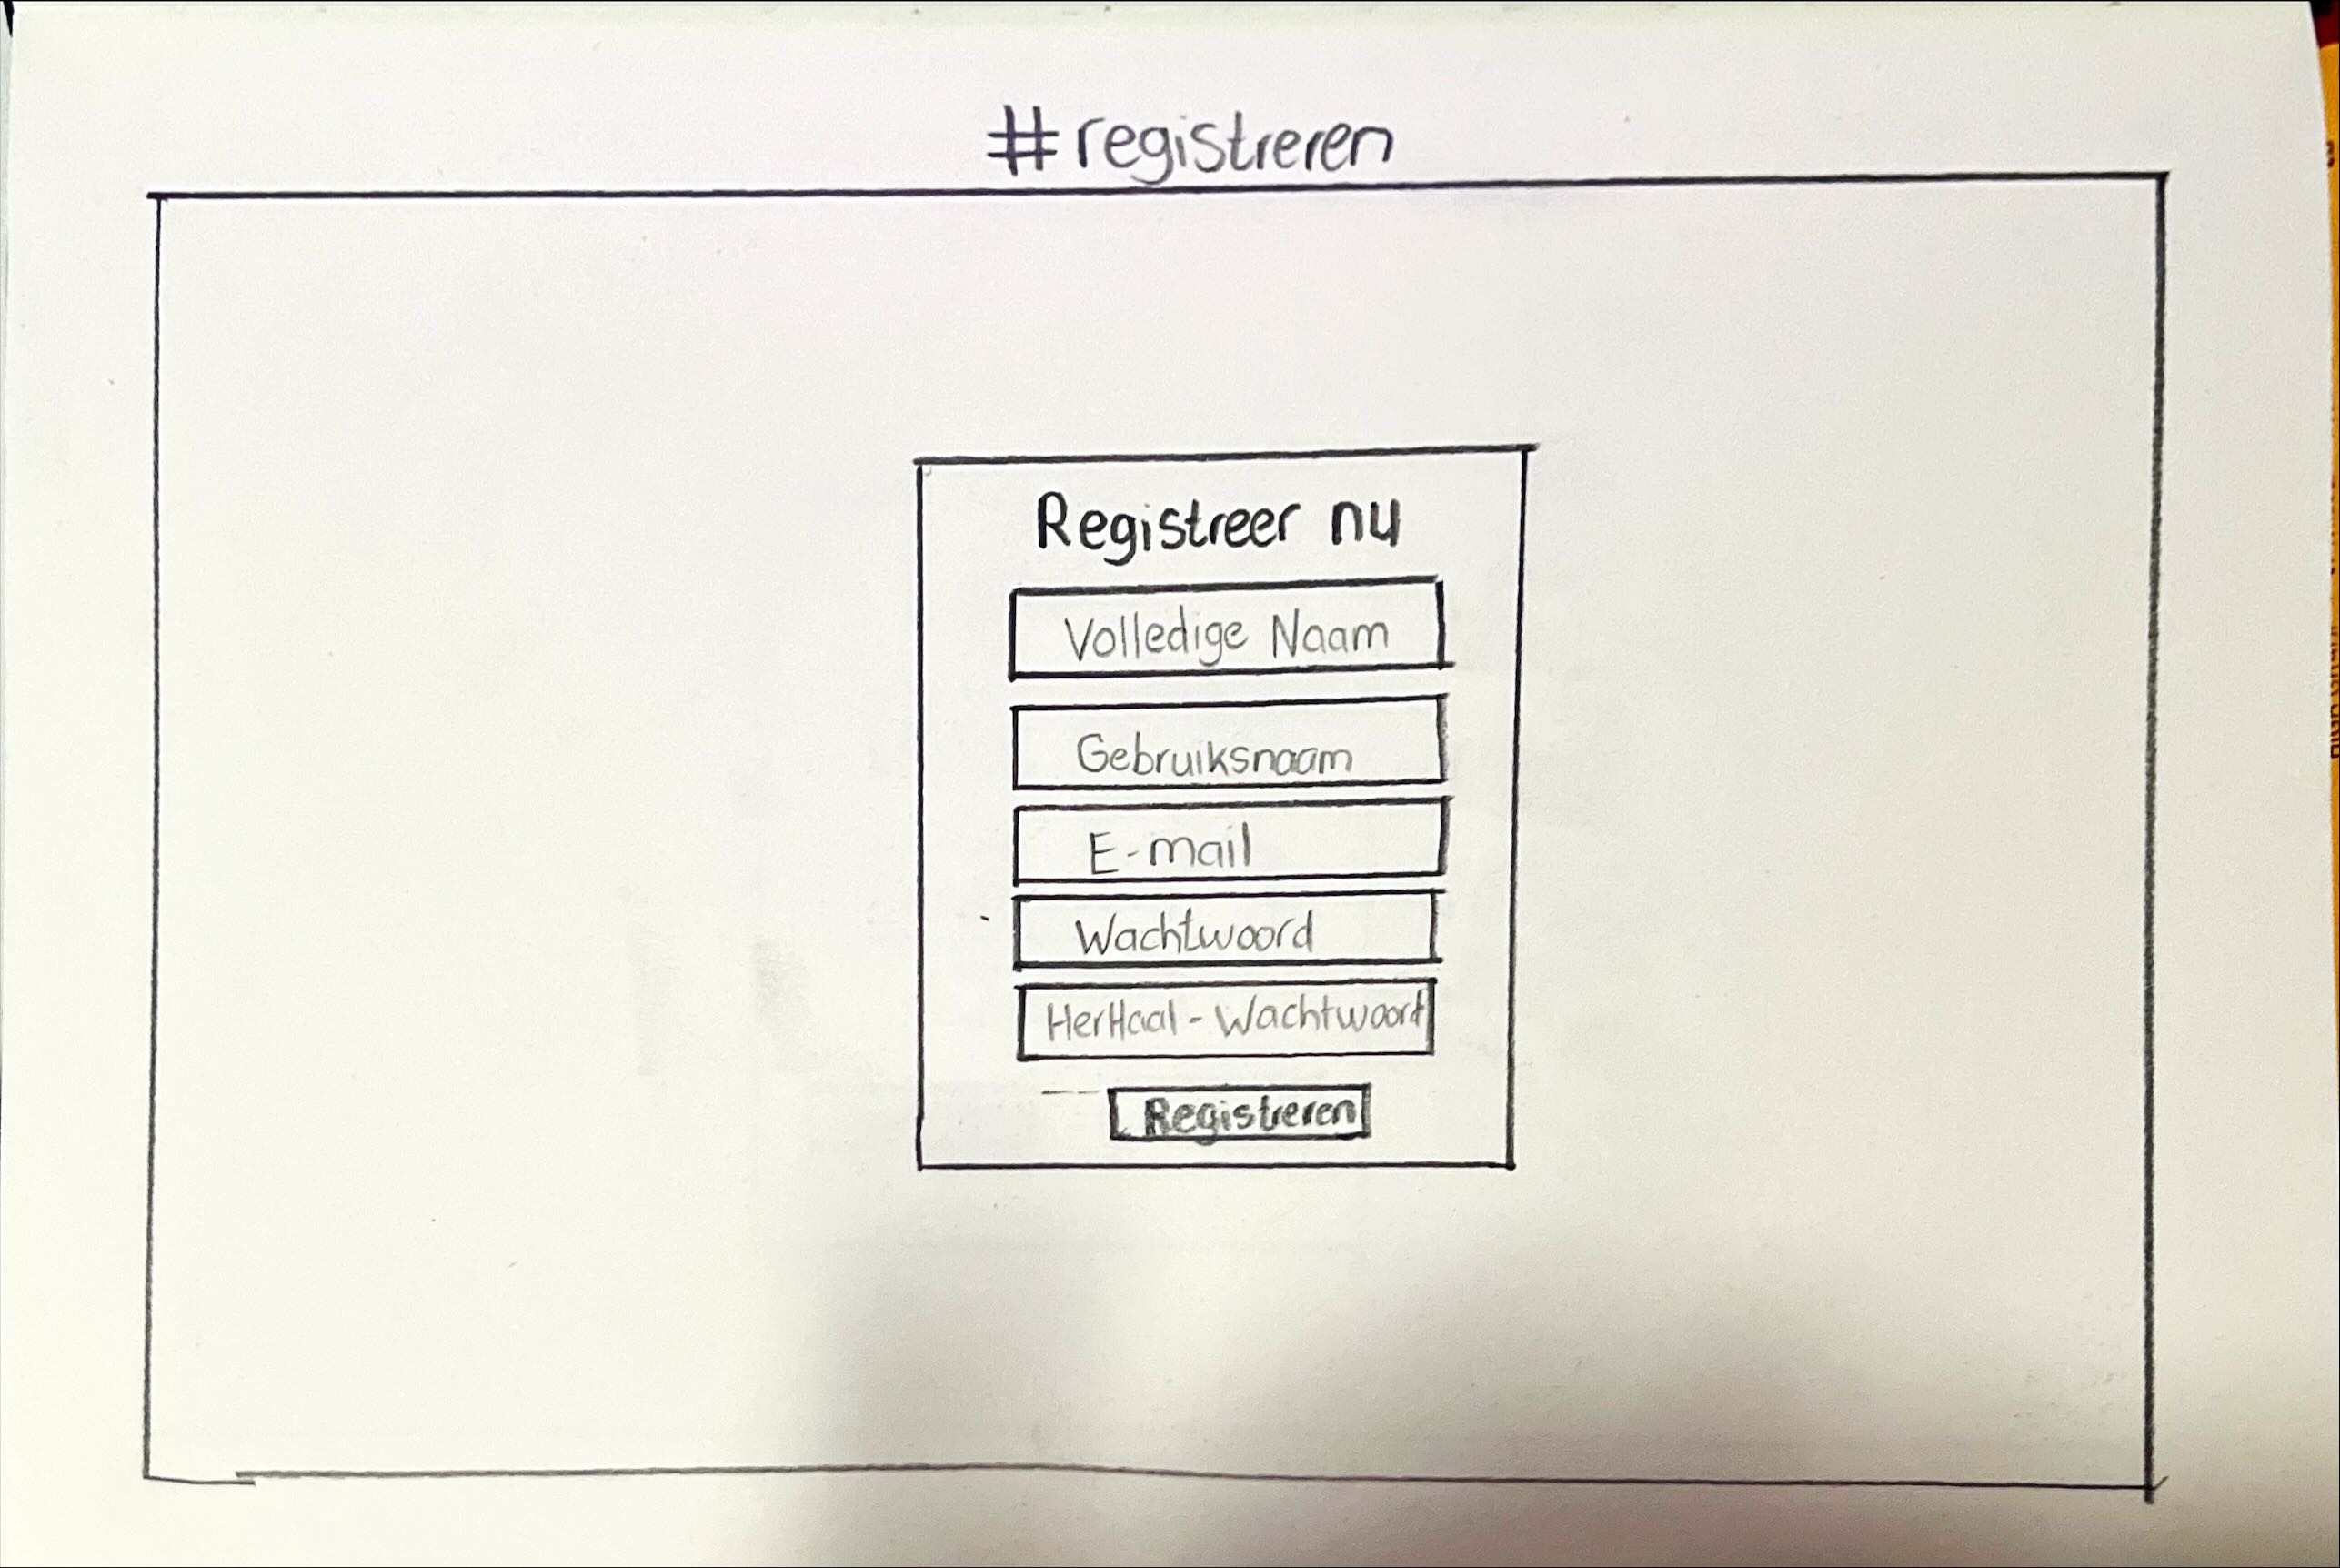 #registreren
Registreer nu
Volledige Naam
Gebruiksnaam
E-mail
Wachtwoord
HerHaal-Wachtwoord
Registreren